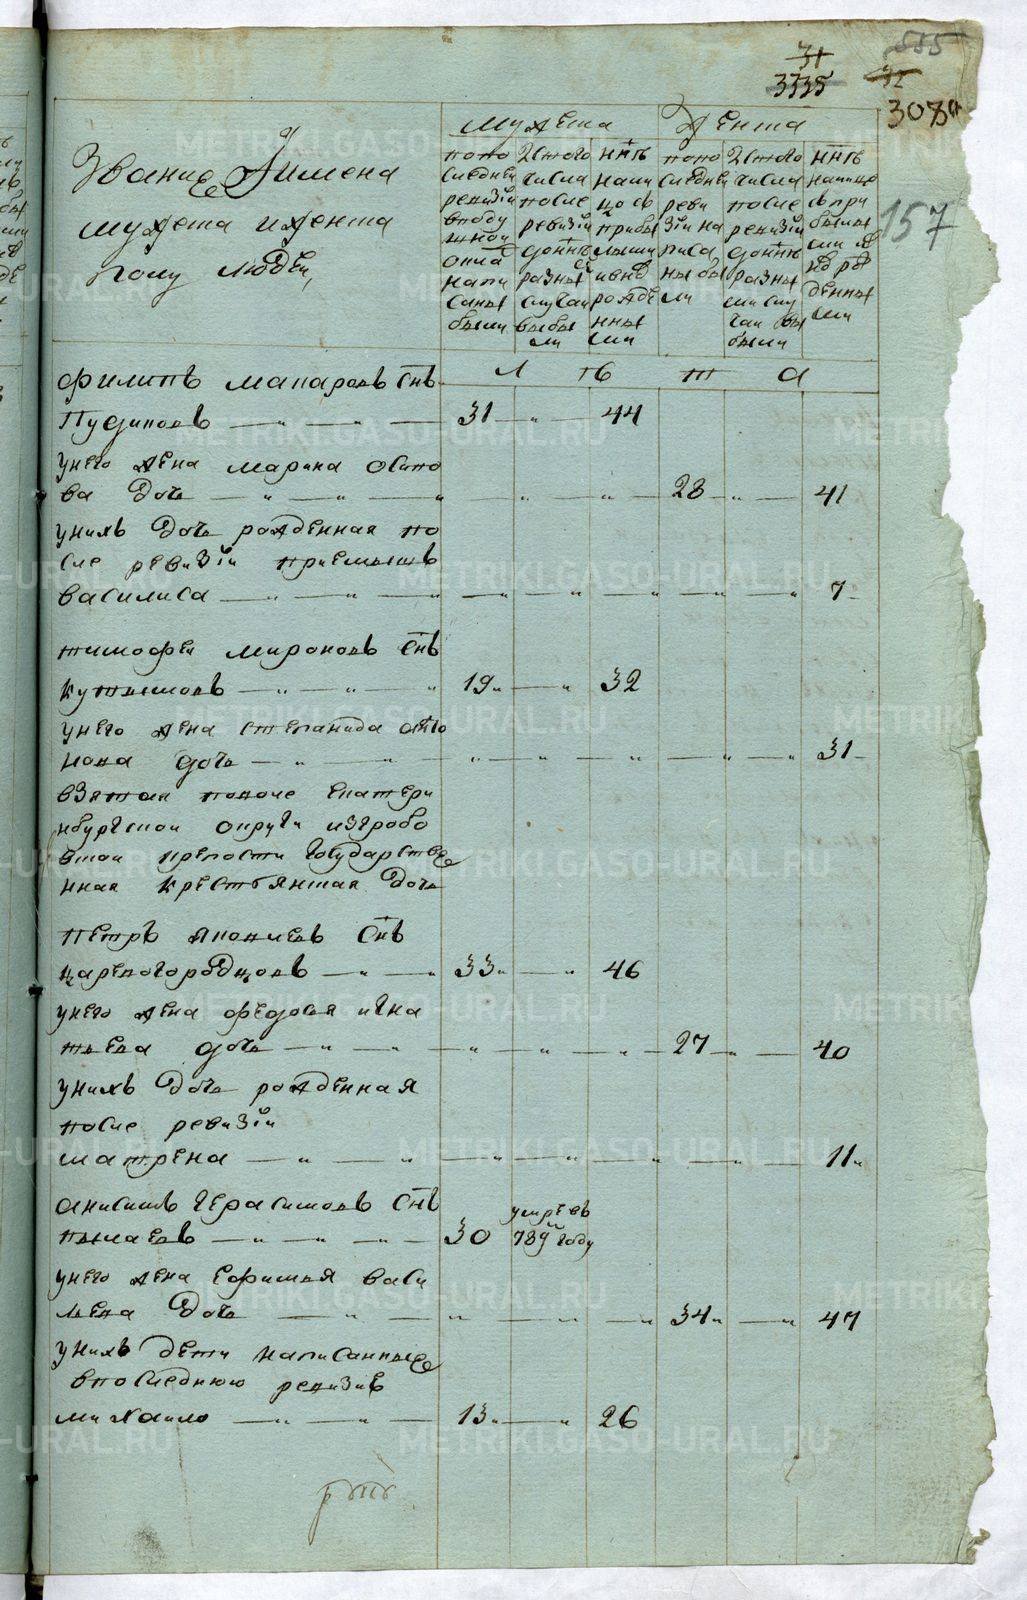 555
31
32
3335
308
157
Звание Имена
мужеска и женска
полу людеи
мужеска
женска
по по
следнеи
ревизiи
в поду
шнои
окла
написаны
были
Из того
числа
после
ревизiи
до ннѣ
разны
случаи
выбы
ли
ннѣ
нали
цо съ
прибы
лыми
и внов
рожде
нны
ми
по по
следнеи
реви
зiи на
писа
ны бы
ли
Из того
числа
после
ревизiи
до ннѣ
разны
ми слу
чаи вы
были
ннѣ
налицо
съ при
былы
ми и
рож
денны
ми
л ѣ т а
филипъ макаровъ снъ
Пудиковъ 31 44
у него жена марина осипо
ва дочь 28 41
у нихъ дочь рожденная по
сле ревизiи приемышъ
василиса 7
тимофеи мироновъ снъ
кутышовъ 19 32
у него жена степанида анто
нова дочь 31
взятая после екатери
нбургскои округи из гробо
вскои крепости государстве
нная крестьянская дочь
петръ яковлевъ снъ
царевогородцовъ 33 46
у него жена федосья игна
тьева дочь 27 40
у нихъ дочь рожденная
после ревизiи
матрена 11
анисимъ герасимовъ снъ
пылаевъ 30 умре въ
789 году
у него жена ефимья васи
льева дочь 34 47
у нихъ дети написанные
в последнюю ревизию
михаило 13 26
METRIKI.GASO-URAL.RU